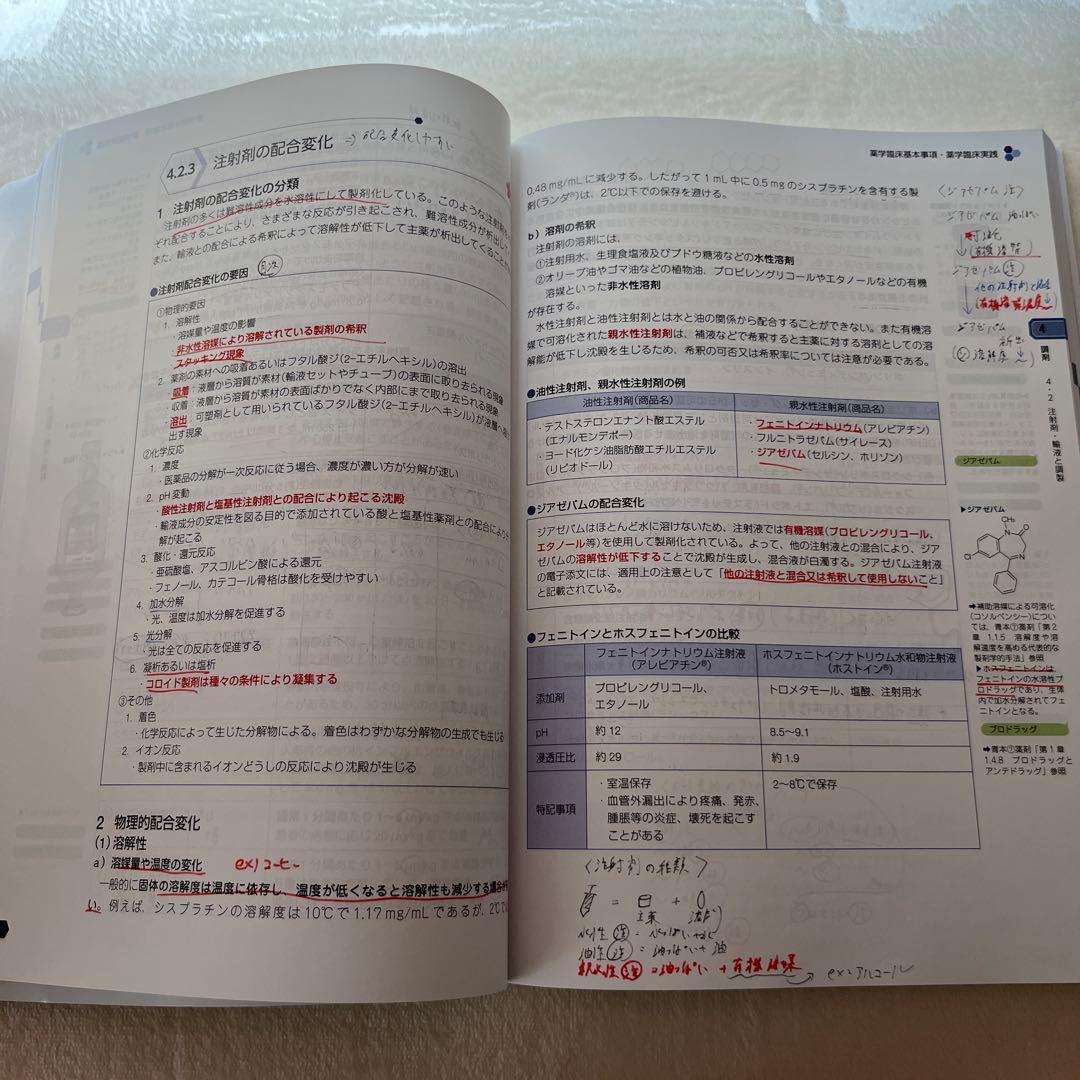 4.2.3 注射剤の配合変化 ⇒ 配合変化しやすい
1 注射剤の配合変化の分類
注射剤の多くは難溶性成分を水溶性にして製剤化している。このような注射剤を
ぞれ配合することにより、さまざまな反応が引き起こされ、難溶性成分が析出して
また、輸液との配合による希釈によって溶解性が低下して主薬が析出してくること
●注射剤配合変化の要因 目次
①物理的要因
1. 溶解性
・溶媒量や温度の影響
・非水性溶媒により溶解されている製剤の希釈
・スタッキング現象
2. 薬剤の素材への吸着あるいはフタル酸ジ(2-エチルヘキシル)の溶出
・吸着：液層から溶質が素材(輸液セットやチューブ)の表面に取り去られる現象
・収着：液層から溶質が素材の表面ばかりでなく内部にまで取り去られる現象
・溶出：可塑剤として用いられているフタル酸ジ(2-エチルヘキシル)が液層へ
出す現象
②化学反応
1. 濃度
・医薬品の分解が一次反応に従う場合、濃度が濃い方が分解が速い
2. pH変動
・酸性注射剤と塩基性注射剤との配合により起こる沈殿
・輸液成分の安定性を図る目的で添加されている酸と塩基性薬剤との配合により
解が起こる
3. 酸化・還元反応
・亜硫酸塩、アスコルビン酸による還元
・フェノール、カテコール骨格は酸化を受けやすい
4. 加水分解
・光、温度は加水分解を促進する
5. 光分解
・光は全ての反応を促進する
6. 凝析あるいは塩析
・コロイド製剤は種々の条件により凝集する
③その他
1. 着色
・化学反応によって生じた分解物による。着色はわずかな分解物の生成でも生じる
2. イオン反応
・製剤中に含まれるイオンどうしの反応により沈殿が生じる
2 物理的配合変化
(1)溶解性
a) 溶媒量や温度の変化 ex)コーヒー
一般的に固体の溶解度は温度に依存し、温度が低くなると溶解性も減少する場合が
い。例えば、シスプラチンの溶解度は10℃で1.17mg/mLであるが、2℃では
薬学臨床基本事項・薬学臨床実践
0.48mg/mLに減少する。したがって1mL中に0.5mgのシスプラチンを含有する製
剤(ランダ®)は、2℃以下での保存を避ける。
b) 溶剤の希釈
注射剤の溶剤には、
①注射用水、生理食塩液及びブドウ糖液などの水性溶剤
②オリーブ油やゴマ油などの植物油、プロピレングリコールやエタノールなどの有機
溶媒といった非水性溶剤
が存在する。
水性注射剤と油性注射剤とは水と油の関係から配合することができない。また有機溶
媒で可溶化された親水性注射剤は、補液などで希釈すると主薬に対する溶剤としての溶
解能が低下し沈殿を生じるため、希釈の可否又は希釈率については注意が必要である。
●油性注射剤、親水性注射剤の例
油性注射剤(商品名) 親水性注射剤(商品名)
・テストステロンエナント酸エステル
(エナルモンデポー)
・ヨード化ケシ油脂肪酸エチルエステル
(リピオドール)
・フェニトインナトリウム(アレビアチン)
・フルニトラゼパム(サイレース)
・ジアゼパム(セルシン、ホリゾン)
●ジアゼパムの配合変化
ジアゼパムはほとんど水に溶けないため、注射液では有機溶媒(プロピレングリコール、
エタノール等)を使用して製剤化されている。よって、他の注射液との混合により、ジア
ゼパムの溶解性が低下することで沈殿が生成し、混合液が白濁する。ジアゼパム注射液
の電子添文には、適用上の注意として「他の注射液と混合又は希釈して使用しないこと」
と記載されている。
●フェニトインとホスフェニトインの比較
フェニトインナトリウム注射液
(アレビアチン®)
ホスフェニトインナトリウム水和物注射液
(ホストイン®)
添加剤 プロピレングリコール、
エタノール
トロメタモール、塩酸、注射用水
pH 約12 8.5〜9.1
浸透圧比 約29 約1.9
特記事項
・室温保存
・血管外漏出により疼痛、発赤、
腫脹等の炎症、壊死を起こす
ことがある
2〜8℃で保存
〈注射剤の種類〉
= + 
主薬 溶剤
水性注 = 水っぽい+水
油性注 = 油っぽい+油
親水性注 = 油っぽい+有機溶媒 ex:アルコール
〈ジアゼパム注〉
ジアゼパム 油っぽい
↓可溶化
(有機溶媒)
ジアゼパム注
↓他の注射剤と
(有機溶媒濃度↓)
ジアゼパム
析出
溶解度↓
4
調剤
4・2 注射剤・輸液と調製
ジアゼパム
▶ジアゼパム
CH₃
N
O
Cl
N
➡補助溶媒による可溶化
(コソルベンシー)につい
ては、青本①薬剤「第2
章 1.1.5 溶解度や溶
解速度を高める代表的な
製剤学的手法」参照
▶ホスフェニトインは、
フェニトインの水溶性プ
ロドラッグであり、生体
内で加水分解されてフェ
ニトインとなる。
プロドラッグ
➡青本①薬剤「第1章
1.4.8 プロドラッグと
アンテドラッグ」参照